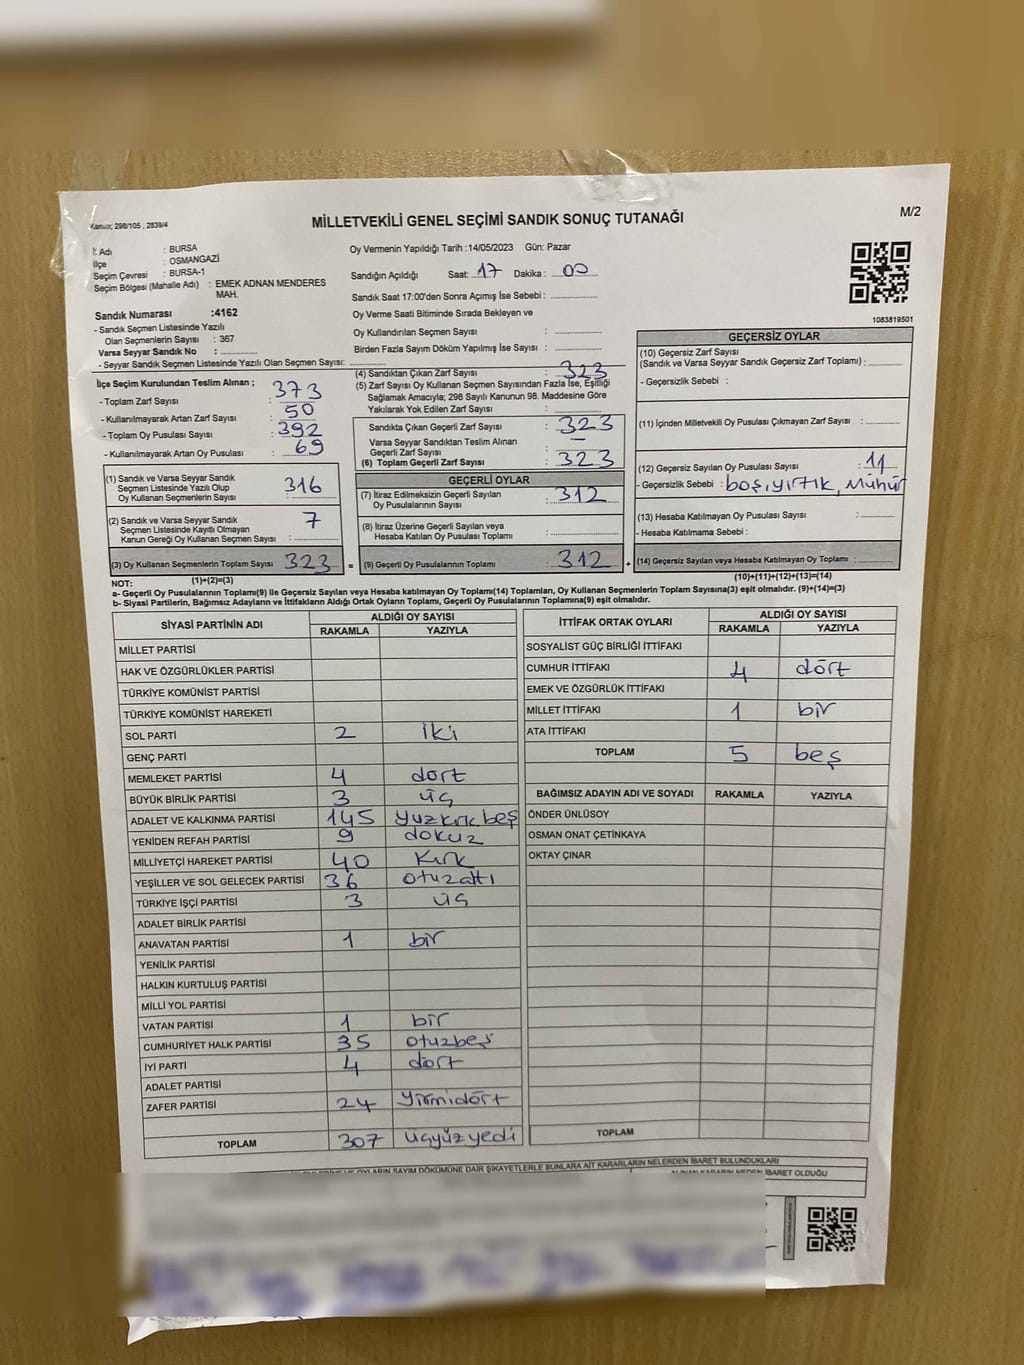 Kanun; 298/105 , 2839/4
MİLLETVEKİLİ GENEL SEÇİMİ SANDIK SONUÇ TUTANAĞI
M/2
İl Adı : BURSA
İlçe : OSMANGAZİ
Seçim Çevresi : BURSA-1
Seçim Bölgesi (Mahalle Adı) : EMEK ADNAN MENDERES
MAH.
Sandık Numarası :4162
- Sandık Seçmen Listesinde Yazılı
Olan Seçmenlerin Sayısı : 367
Varsa Seyyar Sandık No :
- Seyyar Sandık Seçmen Listesinde Yazılı Olan Seçmen Sayısı:
Oy Vermenin Yapıldığı Tarih :14/05/2023 Gün: Pazar
Sandığın Açıldığı Saat: 17 Dakika : 00
Sandık Saat 17:00'den Sonra Açımış İse Sebebi :
Oy Verme Saati Bitiminde Sırada Bekleyen ve
Oy Kullandırılan Seçmen Sayısı :
Birden Fazla Sayım Döküm Yapılmış İse Sayısı :
1083819501
İlçe Seçim Kurulundan Teslim Alınan ;
- Toplam Zarf Sayısı : 373
- Kullanılmayarak Artan Zarf Sayısı : 50
- Toplam Oy Pusulası Sayısı : 392
- Kullanılmayarak Artan Oy Pusulası : 69
(1) Sandık ve Varsa Seyyar Sandık
Seçmen Listesinde Yazılı Olup
Oy Kullanan Seçmenlerin Sayısı : 316
(2) Sandık ve Varsa Seyyar Sandık
Seçmen Listesinde Kayıtlı Olmayan
Kanun Gereği Oy Kullanan Seçmen Sayısı : 7
(3) Oy Kullanan Seçmenlerin Toplam Sayısı 323 =
(1)+(2)=(3)
(4) Sandıktan Çıkan Zarf Sayısı : 323
(5) Zarf Sayısı Oy Kullanan Seçmen Sayısından Fazla İse, Eşitliği
Sağlamak Amacıyla; 298 Sayılı Kanunun 98. Maddesine Göre
Yakılarak Yok Edilen Zarf Sayısı :
Sandıkta Çıkan Geçerli Zarf Sayısı : 323
Varsa Seyyar Sandıktan Teslim Alınan
Geçerli Zarf Sayısı : –
(6) Toplam Geçerli Zarf Sayısı : 323
GEÇERLİ OYLAR
(7) İtiraz Edilmeksizin Geçerli Sayılan
Oy Pusulalarının Sayısı : 312
(8) İtiraz Üzerine Geçerli Sayılan veya
Hesaba Katılan Oy Pusulası Toplamı :
(9) Geçerli Oy Pusulalarının Toplamı : 312 +
GEÇERSİZ OYLAR
(10) Geçersiz Zarf Sayısı
(Sandık ve Varsa Seyyar Sandık Geçersiz Zarf Toplamı) :
- Geçersizlik Sebebi :
(11) İçinden Milletvekili Oy Pusulası Çıkmayan Zarf Sayısı :
(12) Geçersiz Sayılan Oy Pusulası Sayısı : 11
- Geçersizlik Sebebi : boş, yırtık, Mühür
(13) Hesaba Katılmayan Oy Pusulası Sayısı :
- Hesaba Katılmama Sebebi :
(14) Geçersiz Sayılan veya Hesaba Katılmayan Oy Toplamı :
(10)+(11)+(12)+(13)=(14)
NOT:
a- Geçerli Oy Pusulalarının Toplamı(9) ile Geçersiz Sayılan veya Hesaba katılmayan Oy Toplamı(14) Toplamları, Oy Kullanan Seçmenlerin Toplam Sayısına(3) eşit olmalıdır. (9)+(14)=(3)
b- Siyasi Partilerin, Bağımsız Adayların ve İttifakların Aldığı Ortak Oyların Toplamı, Geçerli Oy Pusulalarının Toplamına(9) eşit olmalıdır.
SİYASİ PARTİNİN ADI ALDIĞI OY SAYISI
RAKAMLA YAZIYLA
MİLLET PARTİSİ
HAK VE ÖZGÜRLÜKLER PARTİSİ
TÜRKİYE KOMÜNİST PARTİSİ
TÜRKİYE KOMÜNİST HAREKETİ
SOL PARTİ 2 iki
GENÇ PARTİ
MEMLEKET PARTİSİ 4 dört
BÜYÜK BİRLİK PARTİSİ 3 üç
ADALET VE KALKINMA PARTİSİ 145 yüzkırkbeş
YENİDEN REFAH PARTİSİ 9 dokuz
MİLLİYETÇİ HAREKET PARTİSİ 40 Kırk
YEŞİLLER VE SOL GELECEK PARTİSİ 36 otuzaltı
TÜRKİYE İŞÇİ PARTİSİ 3 üç
ADALET BİRLİK PARTİSİ
ANAVATAN PARTİSİ 1 bir
YENİLİK PARTİSİ
HALKIN KURTULUŞ PARTİSİ
MİLLİ YOL PARTİSİ
VATAN PARTİSİ 1 bir
CUMHURİYET HALK PARTİSİ 35 otuzbeş
İYİ PARTİ 4 dört
ADALET PARTİSİ
ZAFER PARTİSİ 24 Yirmidört
TOPLAM 307 üçyüzyedi
İTTİFAK ORTAK OYLARI ALDIĞI OY SAYISI
RAKAMLA YAZIYLA
SOSYALİST GÜÇ BİRLİĞİ İTTİFAKI
CUMHUR İTTİFAKI 4 dört
EMEK VE ÖZGÜRLÜK İTTİFAKI
MİLLET İTTİFAKI 1 bir
ATA İTTİFAKI
TOPLAM 5 beş
BAĞIMSIZ ADAYIN ADI VE SOYADI RAKAMLA YAZIYLA
ÖNDER ÜNLÜSOY
OSMAN ONAT ÇETİNKAYA
OKTAY ÇINAR
TOPLAM
OYLARIN SAYIM DÖKÜMÜNE DAİR ŞİKAYETLERLE BUNLARA AİT KARARLARIN NELERDEN İBARET BULUNDUKLARI
ALINAN KARARIN NEDEN İBARET OLDUĞU